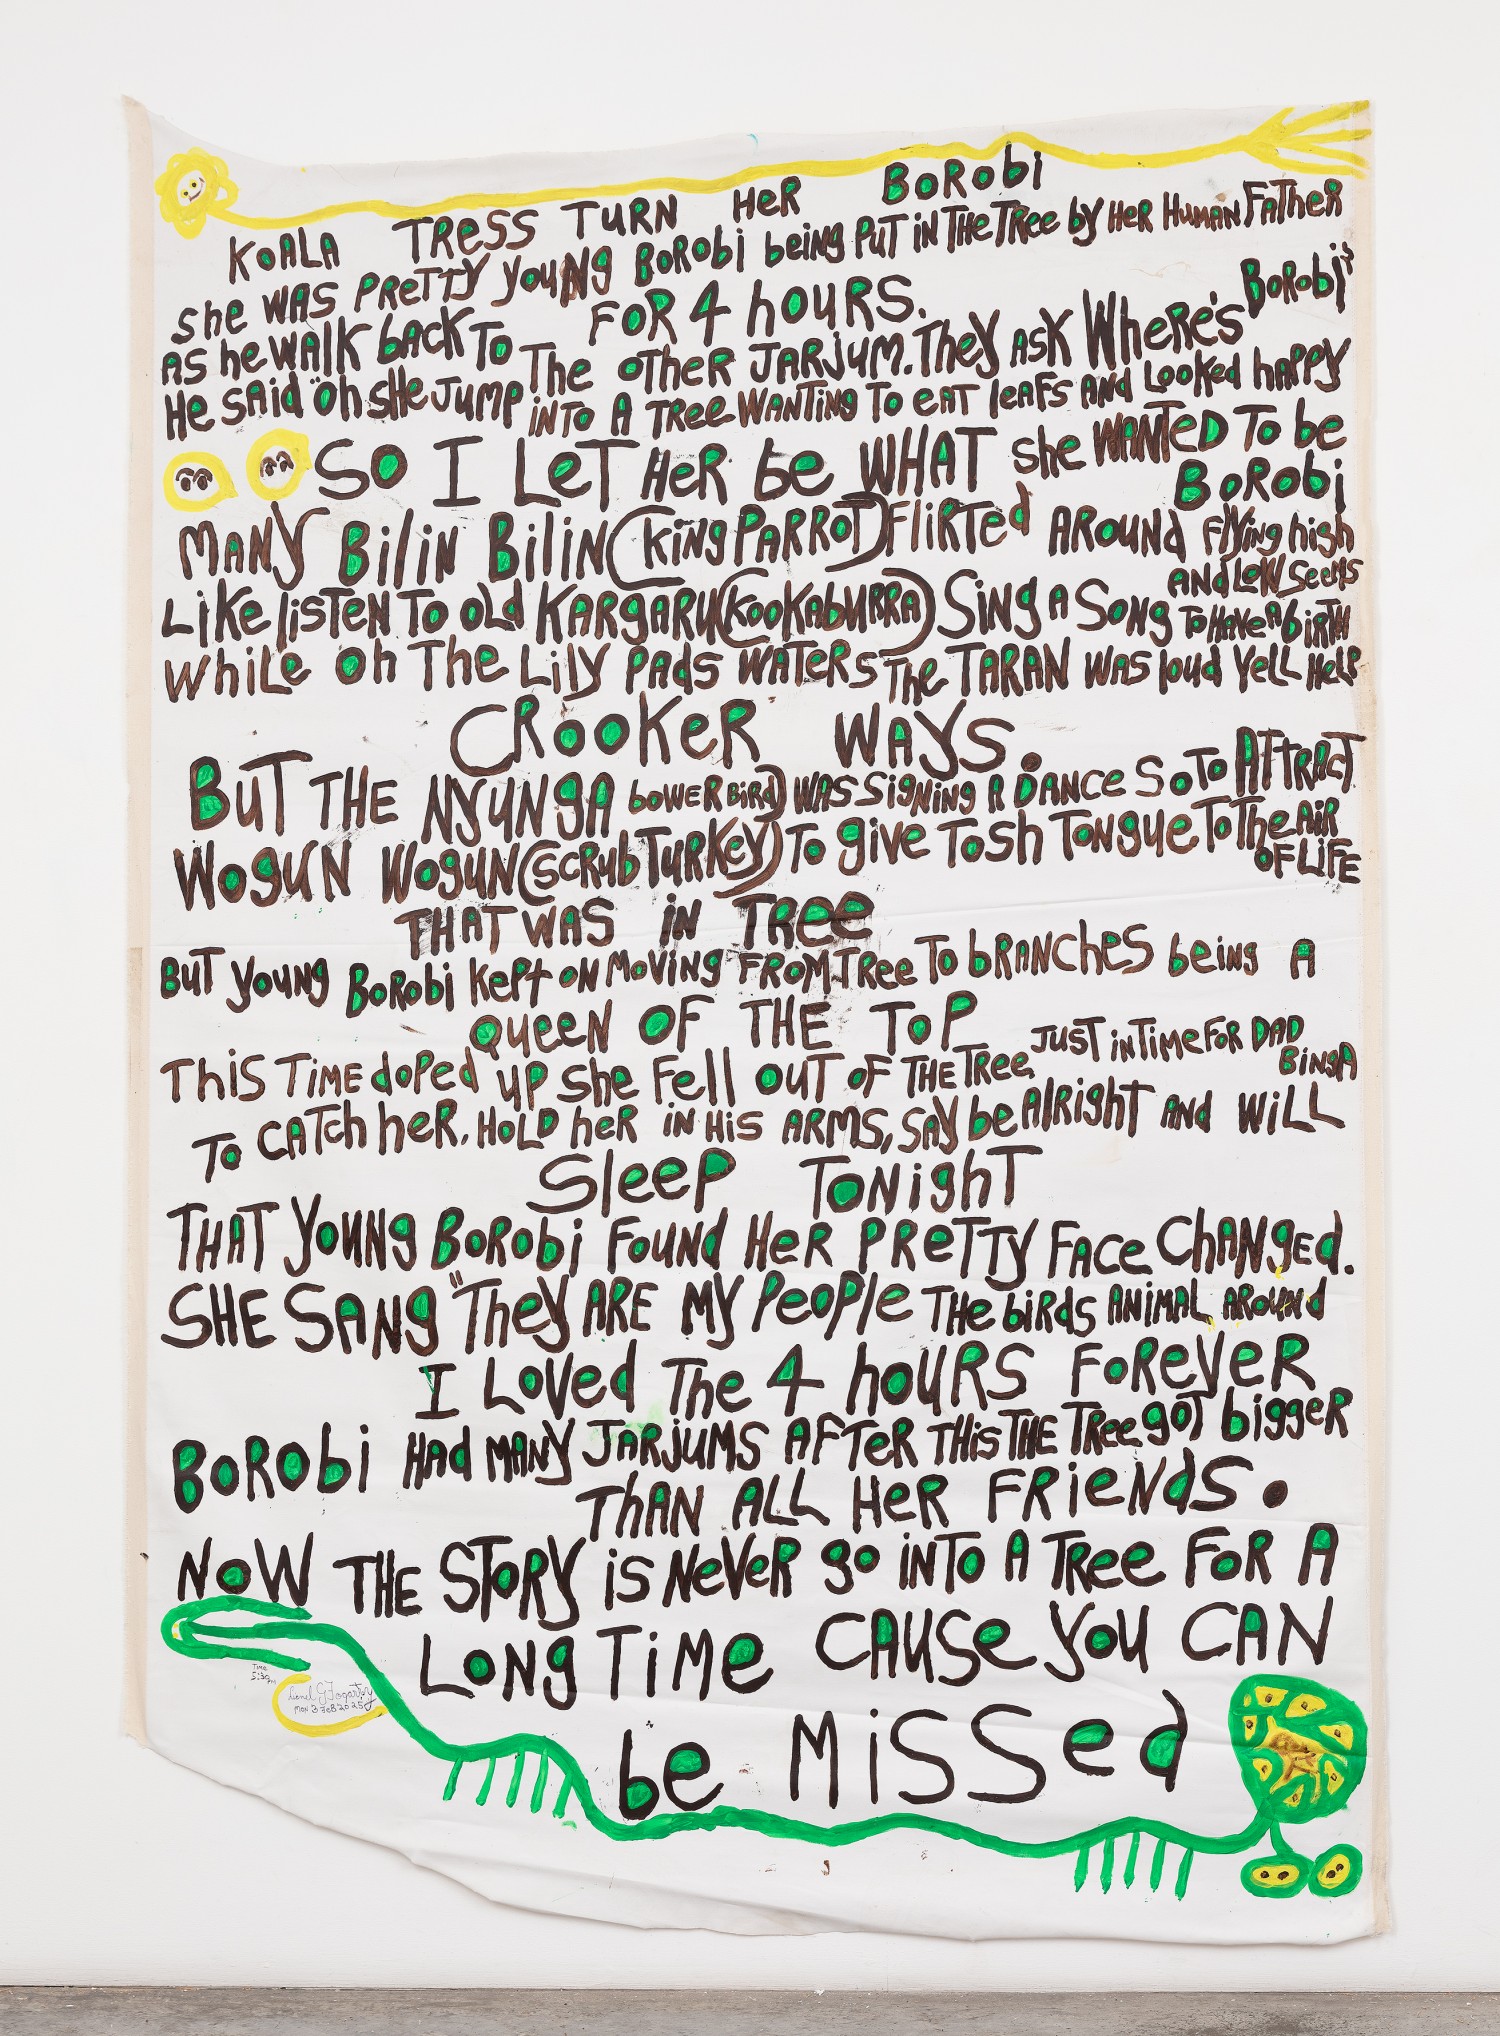 KOALA TRESS TURN HeR BoRobi
She WAS PReTTY YouNg BoRobi beiNg PuT iN THe TRee by HeR HumaN FaTHeR
FoR 4 houRS.
AS he WAlK bAcK To The oTheR JARJUM. They ASK WheRe's BoRobi?
He SAid "Oh SHe Jump iNTo A TRee WANTiNg To eAT leAFS ANd LooKed hAppy
So I LeT HeR be WHAT She WANTeD To be
BoRobi
MANy BiliN BiliN (KiNg PARRoT) FliRTed ARouNd FlyiNg high
ANd LoW SeemS
LiKe liSTeN To old KARgARu (KooKAbuRRA) SiNg A SoNg To HAVe A biRTH
WhiLe oN The Lily PAdS WATeRS The TARAN WAS loud YeLL HeLP
CRooKeR WAyS.
BuT THE NyuNgA boWeR BiRd) WAS SigNiNg A DANce So To ATTRAcT
WoguN WoguN (ScRub TuRKey) To giVe ToSh ToNgue To The AiR
oF LiFE
THAT WAS iN TRee
BuT YouNg BoRobi KepT oN MoViNg FRoM TRee To bRANcheS beiNg A
QueeN OF THE ToP
ThiS TiME doped up She Fell ouT oF THE TRee JuST iN Time FoR DAD
BiNgA
To CATch heR. HoLD heR iN HiS ARMS, SAy be AlRighT ANd WiLL
SleeP ToNighT
THAT YouNg BoRobi FouNd HeR PReTTy FAce ChANgEd.
SHE SANg "They ARE My PeoPle THe biRdS ANiMAL ARouNd
I LoVed The 4 houRS FoReVeR
BoRobi HAd MANy JARJuMS AFTeR THiS THE TRee goT biggeR
ThAN ALL HeR FRieNdS.
NoW THE SToRy iS NeVeR go iNTo A TRee FoR A
LoNg TiMe CAuSe you CAN
be MiSSed
Time
5:30 pm
Lionel G Fogarty
MON 3 FeB 2025